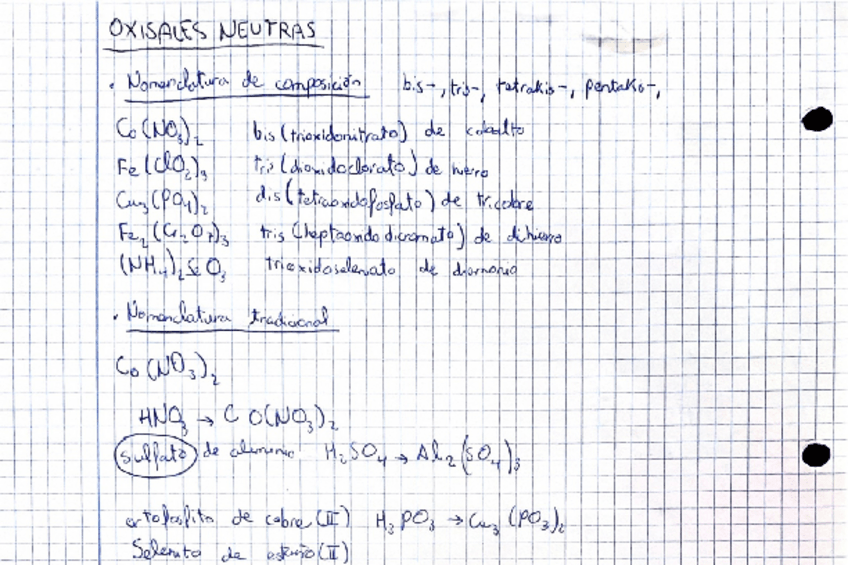 OXISALES NEUTRAS
· Nomenclatura de composición bis-, tris-, tetrakis-, pentakis-,
Co(NO₃)₂ bis(trioxidonitrato) de cobalto
Fe(ClO₂)₃ tris(dioxidoclorato) de hierro
Cu₃(PO₄)₂ dis(tetraoxidofosfato) de tricobre
Fe₂(Cr₂O₇)₃ tris(heptaoxidodicromato) de dihierro
(NH₄)₂SeO₃ trioxidoseleniato de diamonio
· Nomenclatura tradicional
Co(NO₃)₂
HNO₃ → CO(NO₃)₂
sulfato de aluminio H₂SO₄ → Al₂(SO₄)₃
ortofosfito de cobre (II) H₃PO₃ → Cu₃(PO₃)₂
Selenito de estaño (II)